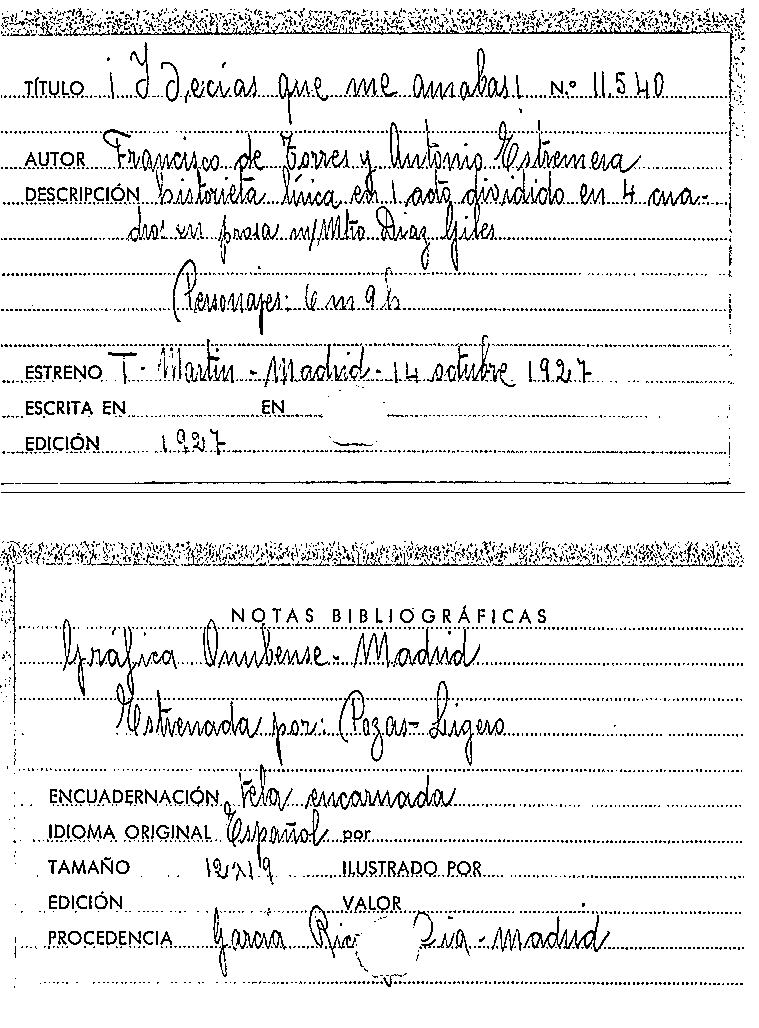 TÍTULO ¡Y decías que me amabas! N.º 11.540
AUTOR Francisco de Torres y Antonio Estremera
DESCRIPCIÓN historieta lírica en 1 acto dividido en 4 cua-
dros en prosa m/Mtro Díaz Giles
Personajes: 6 m 9 h
ESTRENO T. Martín - Madrid - 14 octubre 1927
ESCRITA EN EN
EDICIÓN 1927
NOTAS BIBLIOGRÁFICAS
Gráfica Onubense - Madrid
Estrenada por: Pozas - Ligero
ENCUADERNACIÓN Tela encarnada
IDIOMA ORIGINAL Español por
TAMAÑO 12x19 ILUSTRADO POR
EDICIÓN VALOR
PROCEDENCIA García Rico - Madrid